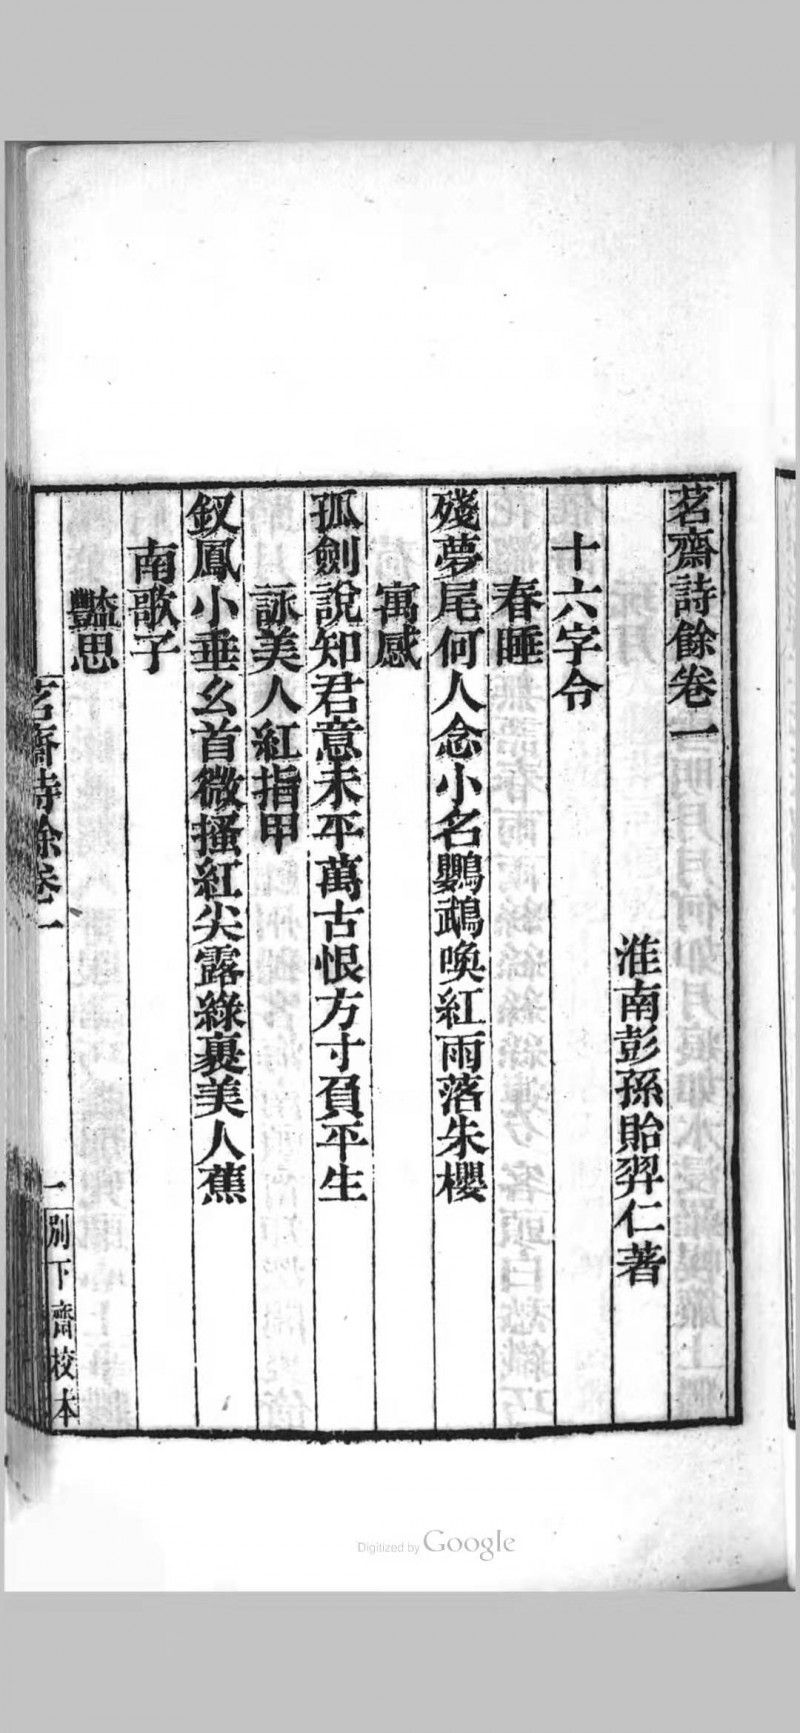 茗齋詩餘卷一
淮南彭孫貽羿仁著
十六字令
春睡
殘夢尾何人念小名鸚鵡喚紅雨落朱櫻
寓感
孤劍說知君意未平萬古恨方寸負平生
詠美人紅指甲
釵鳳小垂幺首微搔紅尖露綠裹美人蕉
南歌子
豔思
茗齋詩餘卷一
一
別下齋校本
Digitized by Google